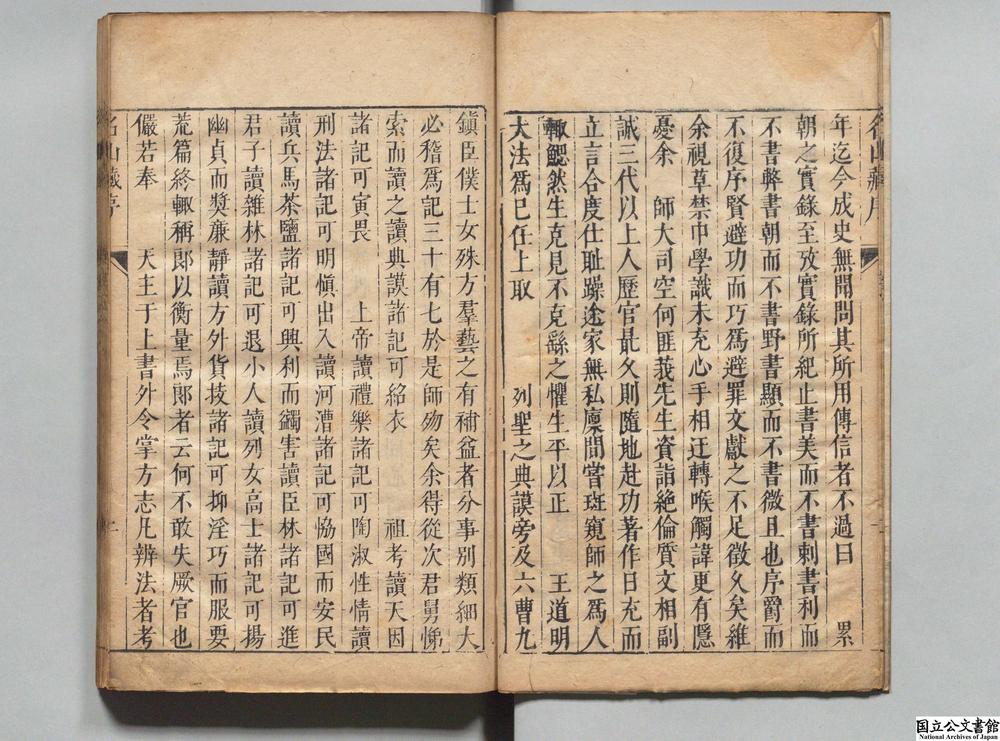 年迄今成史無聞問其所用傳信者不過曰 累
朝之實錄至攷實錄所紀止書美而不書刺書利而
不書弊書朝而不書野書顯而不書微且也序爵而
不復序賢避功而巧爲避罪文獻之不足徵久矣維
余視草禁中學識未充心手相迂轉喉觸諱更有隱
憂余 師大司空何匪莪先生資詣絶倫質文相副
誠三代以上人歷官最久則隨地赴功著作日充而
立言合度仕耻躁途家無私廩間嘗斑窺師之爲人
輙鰓然生克見不克繇之懼生平以正 王道明
大法爲巳任上取 列聖之典謨旁及六曹九
鎭臣僕士女殊方羣藝之有補益者分事別類細大
必稽爲記三十有七於是師歿矣余得從次君舅悌
索而讀之讀典謨諸記可絡衣 祖考讀天因
諸記可寅畏 上帝讀禮樂諸記可陶淑性情讀
刑法諸記可明愼出入讀河漕諸記可恊國而安民
讀兵馬茶鹽諸記可興利而蠲害讀臣林諸記可進
君子讀雜林諸記可退小人讀列女高士諸記可揚
幽貞而奬亷靜讀方外貨技諸記可抑淫巧而服要
荒篇終輙稱郎以衡量焉郎者云何不敢失厥官也
儼若奉 天主于上書外令掌方志凡辨法者考
名山藏序
二
国立公文書館
National Archives of Japan